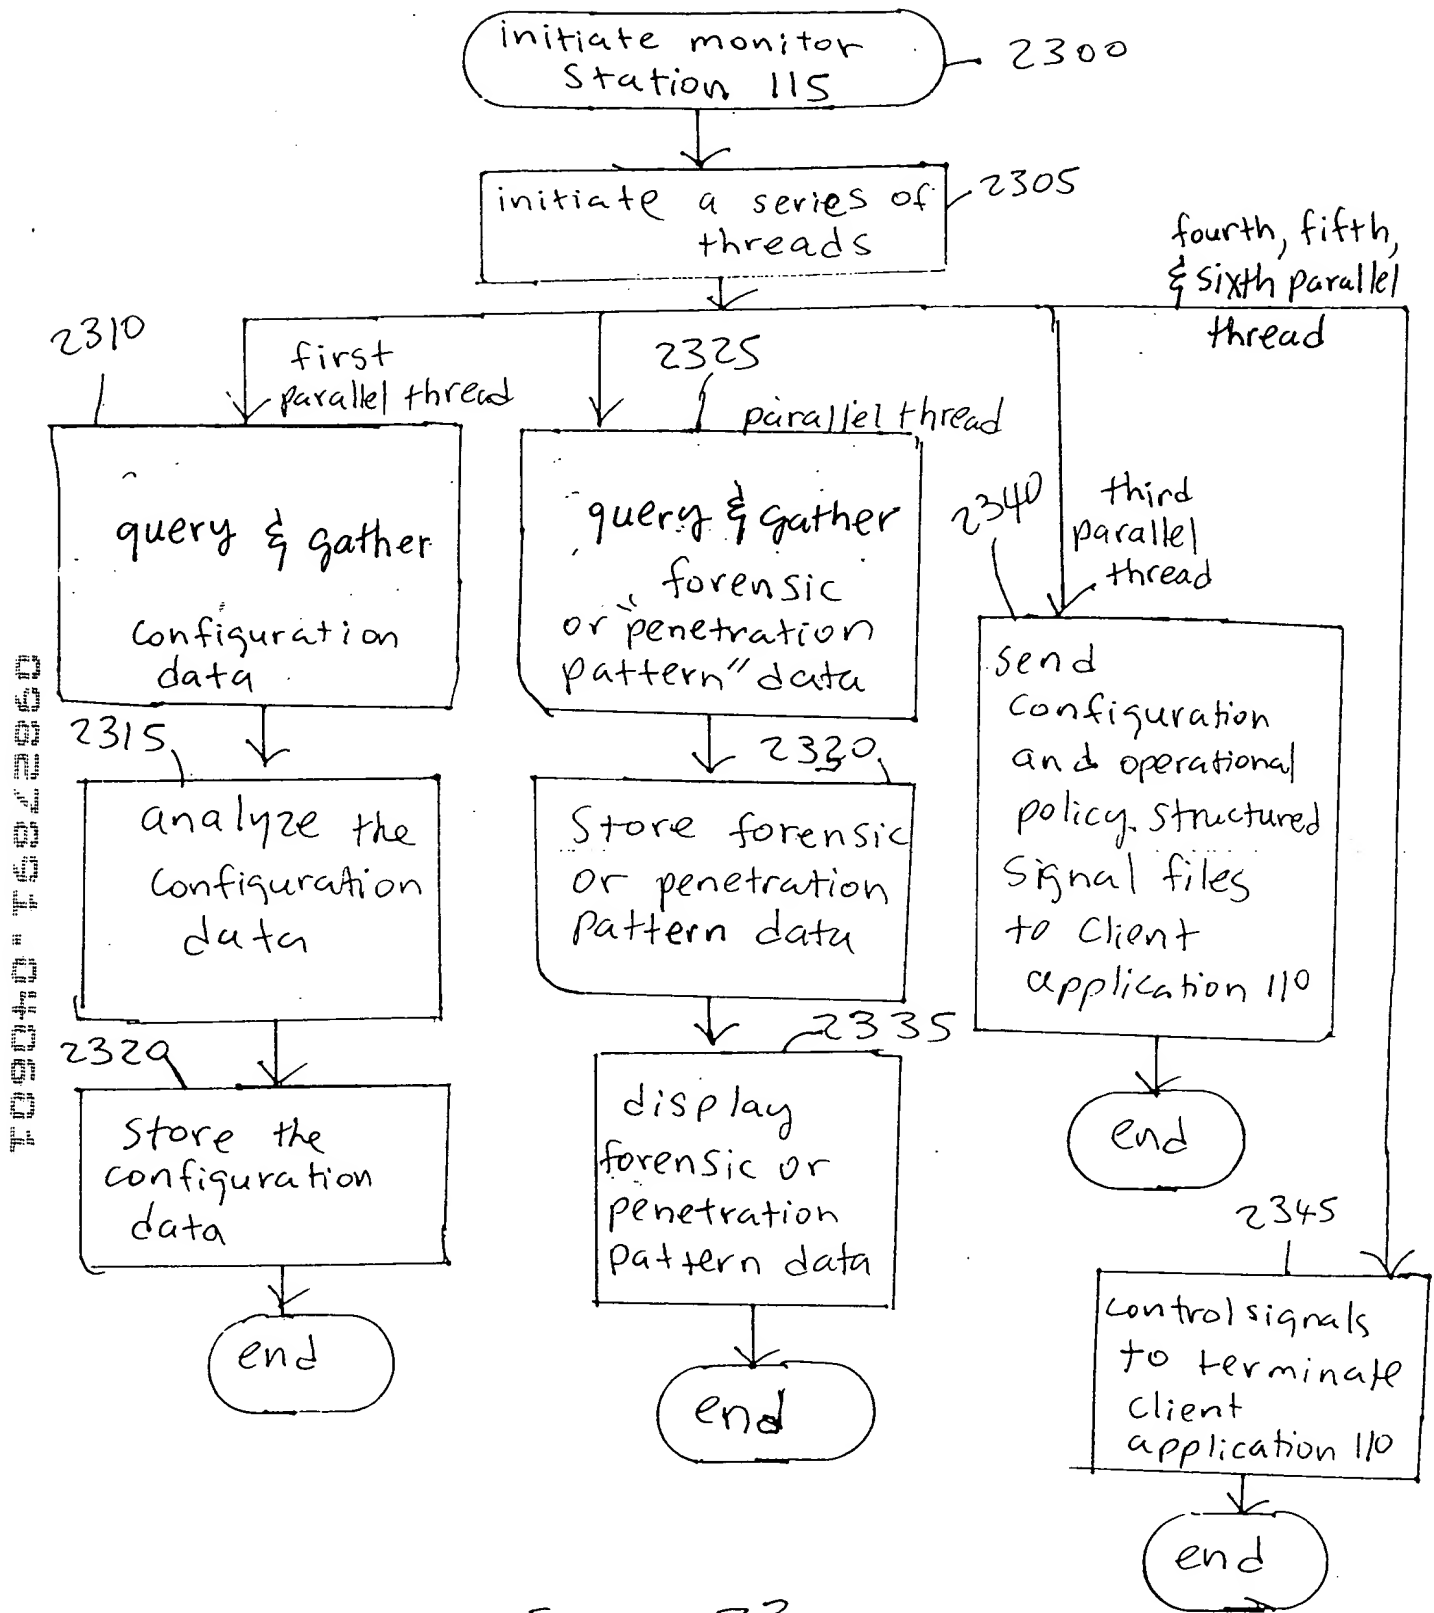 initiate monitor
Station 115
2300
initiate a series of
threads
2305
fourth, fifth,
& sixth parallel
thread
2310
first
parallel thread
2325
parallel thread
2340
third
parallel
thread
query & gather
configuration
data
query & gather
forensic
or "penetration
pattern" data
send
configuration
and operational
policy structured
signal files
to client
application 110
2315
analyze the
configuration
data
2330
Store forensic
or penetration
pattern data
2320
Store the
configuration
data
2335
display
forensic or
penetration
pattern data
end
2345
control signals
to terminate
client
application 110
end
end
end
09827861.040601